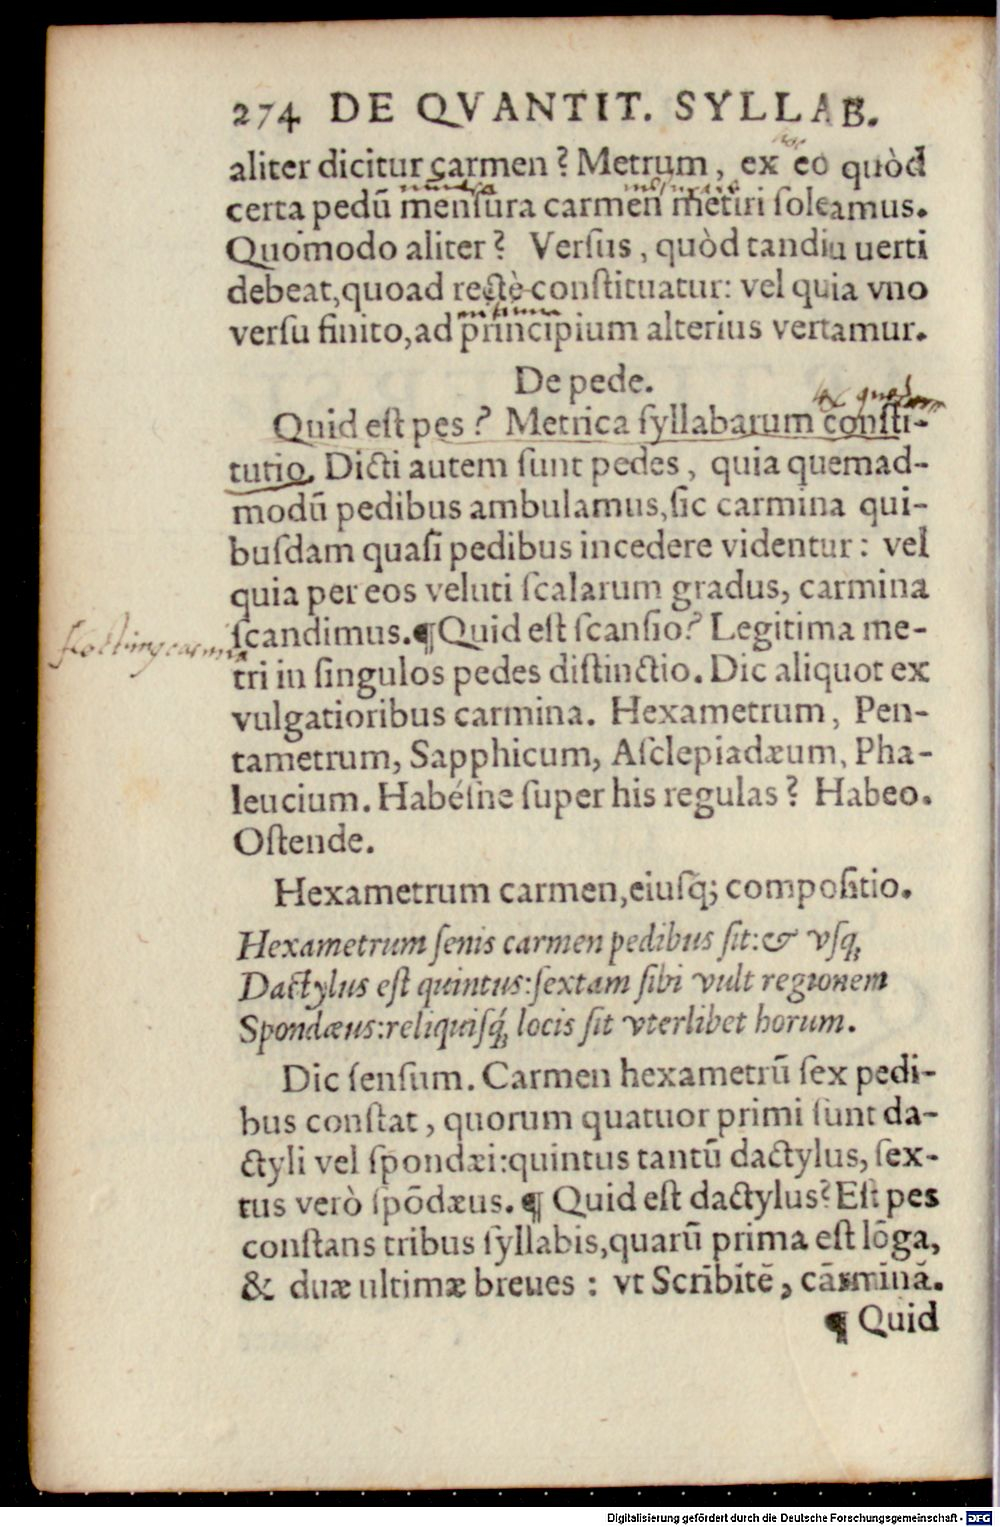 274 DE QVANTIT. SYLLAB.
aliter dicitur carmen? Metrum, ex eo quòd
certa pedũ menſura carmen metiri ſoleamus.
Quomodo aliter? Verſus, quòd tandiu uerti
debeat, quoad rectè conſtituatur: vel quia vno
verſu finito, ad principium alterius vertamur.
De pede.
Quid eſt pes? Metrica ſyllabarum conſti-
tutio. Dicti autem ſunt pedes, quia quemad-
modũ pedibus ambulamus, ſic carmina qui-
buſdam quaſi pedibus incedere videntur: vel
quia per eos veluti ſcalarum gradus, carmina
ſcandimus. ¶ Quid eſt ſcanſio? Legitima me-
tri in ſingulos pedes diſtinctio. Dic aliquot ex
vulgatioribus carmina. Hexametrum, Pen-
tametrum, Sapphicum, Aſclepiadæum, Pha-
leucium. Habéſne ſuper his regulas? Habeo.
Oſtende.
Hexametrum carmen, eiuſq; compoſitio.
Hexametrum ſenis carmen pedibus ſit: & vſq;
Dactylus eſt quintus: ſextam ſibi vult regionem
Spondæus: reliquiſq́; locis ſit vterlibet horum.
Dic ſenſum. Carmen hexametrũ ſex pedi-
bus conſtat, quorum quatuor primi ſunt da-
ctyli vel ſpondæi: quintus tantũ dactylus, ſex-
tus verò ſpõdæus. ¶ Quid eſt dactylus? Eſt pes
conſtans tribus ſyllabis, quarũ prima eſt lõga,
& duæ ultimæ breues: vt Scrībĭtĕ, cārmĭnă.
¶ Quid
Digitalisierung gefördert durch die Deutsche Forschungsgemeinschaft - DFG